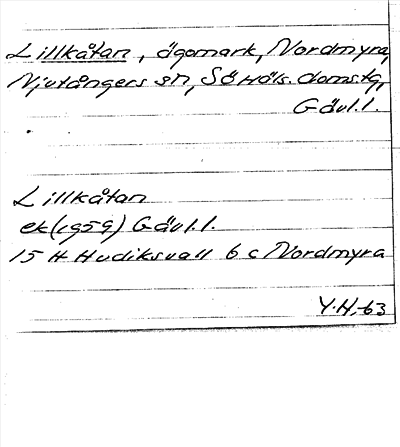 Lillkåtan, ägomark, Nordmyra,
Njutångers sn, Sö Häls. doms.tg,
Gävl.l.
Lillkåtan
ek (1959) Gävl.l.
15 H Hudiksvall 6 c Nordmyra
Y.H.-63